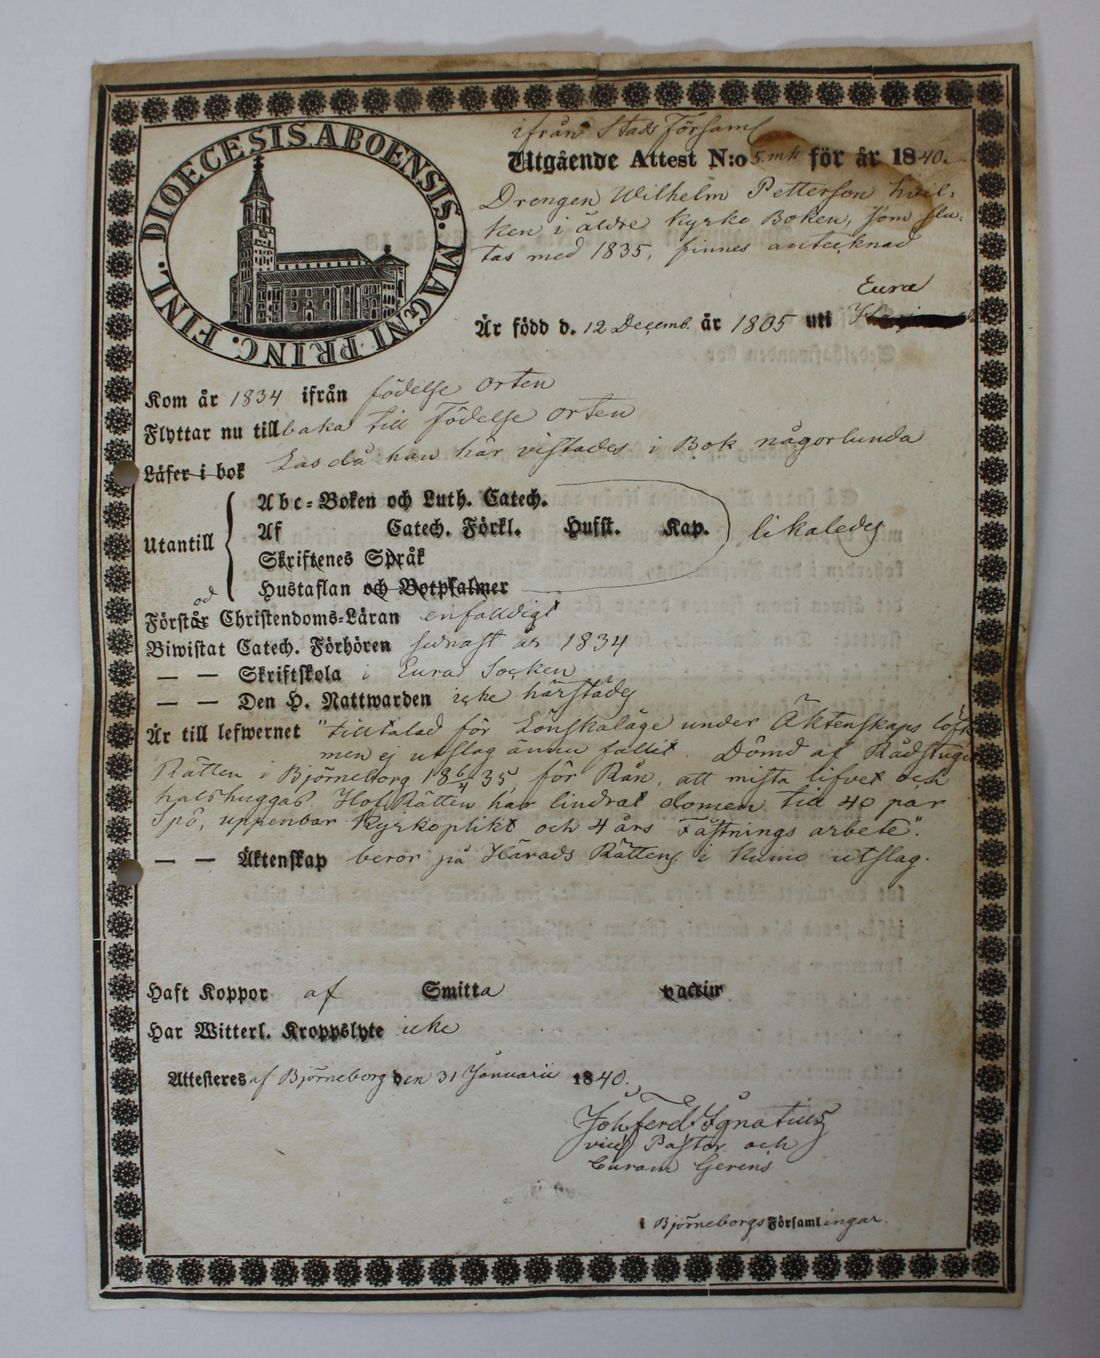 DIOECESIS ABOENSIS. MAGNI PRINC. FINL.
ifrån Stads Församl
Utgående Attest N:o 5. mk för år 1840.
Drengen Wilhelm Petterson hvil-
ken i äldre Kyrko Boken, som slu-
tas med 1835, finnes antecknad
Eura
Är född d. 12 Decemb. år 1805 uti
Kom år 1834 ifrån födelse orten
Flyttar nu tillbaka till Födelse orten
Läser i bok Las då han här vistades i Bok någorlunda
Abc-Boken och Luth. Catech.
Utantill Af Catech. Förkl. Husst. Kap. likaledes
Skriftenes Språk
Hustaflan och Botpsalmer
Förstod Christendoms-Läran enfaldigt
Biwistat Catech. Förhören senast år 1834
— — Skriftskola i Eura Socken
— — Den H. Nattwarden icke härstädes
Är till lefwernet "tilltalad för Lönskaläge under Äktenskaps löfte
men ej utslag ännu fallit. Dömd af Rådstugu
Rätten i Björneborg 18 6/4 35, för Rån, att mista lifvet och
halshuggas. Hof Rätten har lindrat domen till 40 par
Spö, uppenbar Kyrkoplikt och 4 års Fästnings arbete".
— — Äktenskap beror på Härads Rättens i Kumo utslag.
Haft Koppor af Smitta vaccin
Har Witterl. Kroppslyte icke
Attesteres af Björneborg den 31 Januarii 1840.
Joh Ferd Ignatius
vice Pastor och
Curam Gerens
i Björneborgs Församlingar.